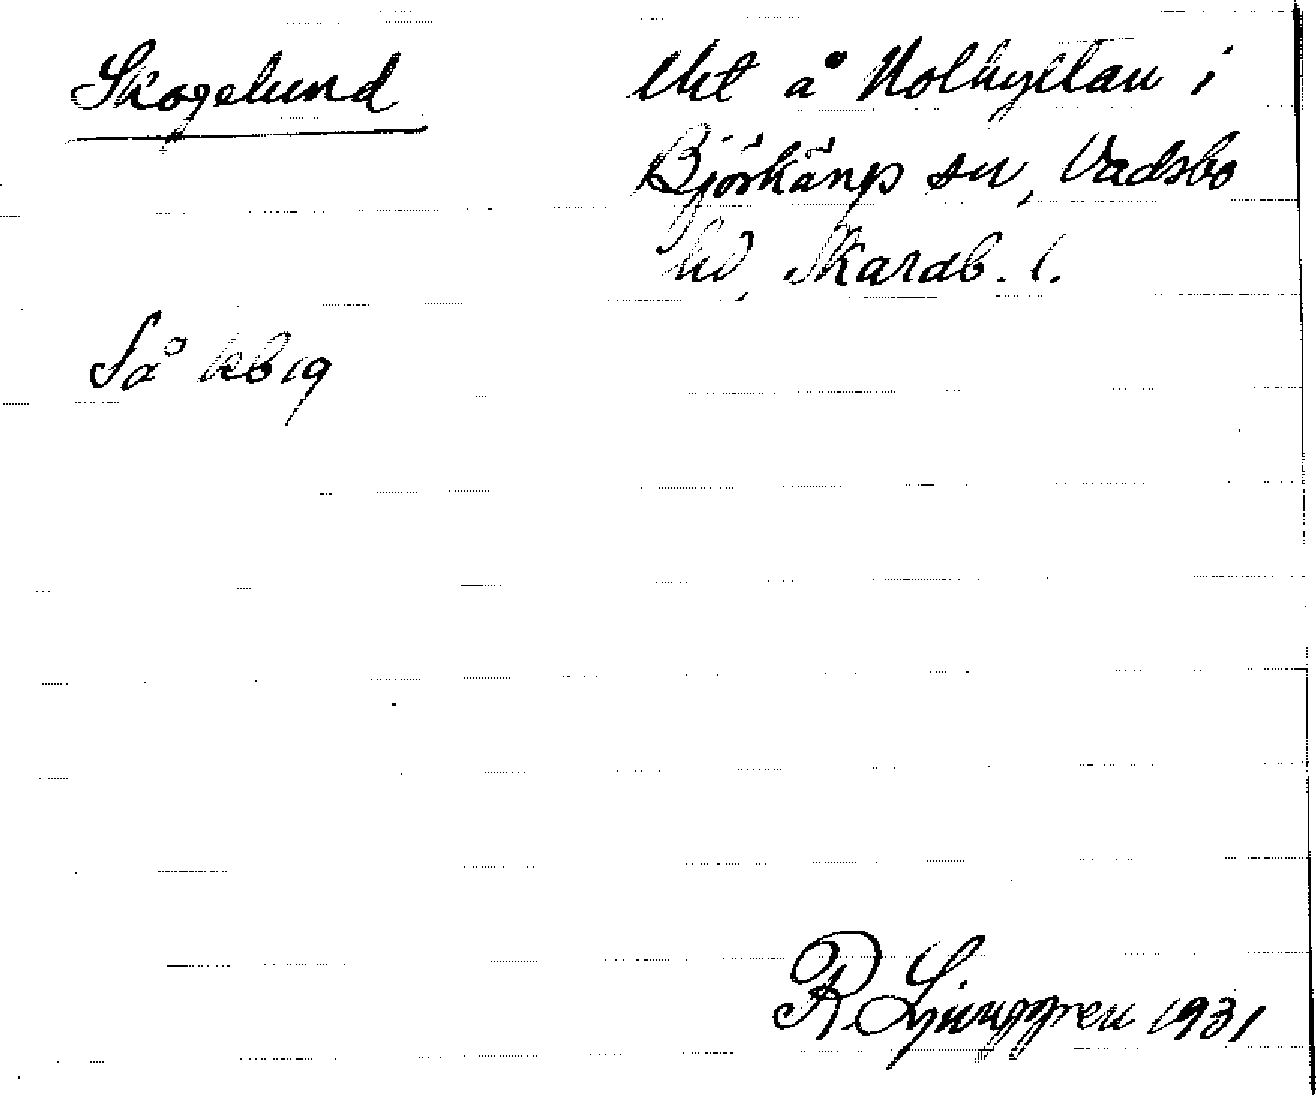 Skogelund
Uht å Nolhyttan i
Björkängs sn, Vadsbo
hd, Skarab. l.
Så kb 19
R. Ljunggren 1931